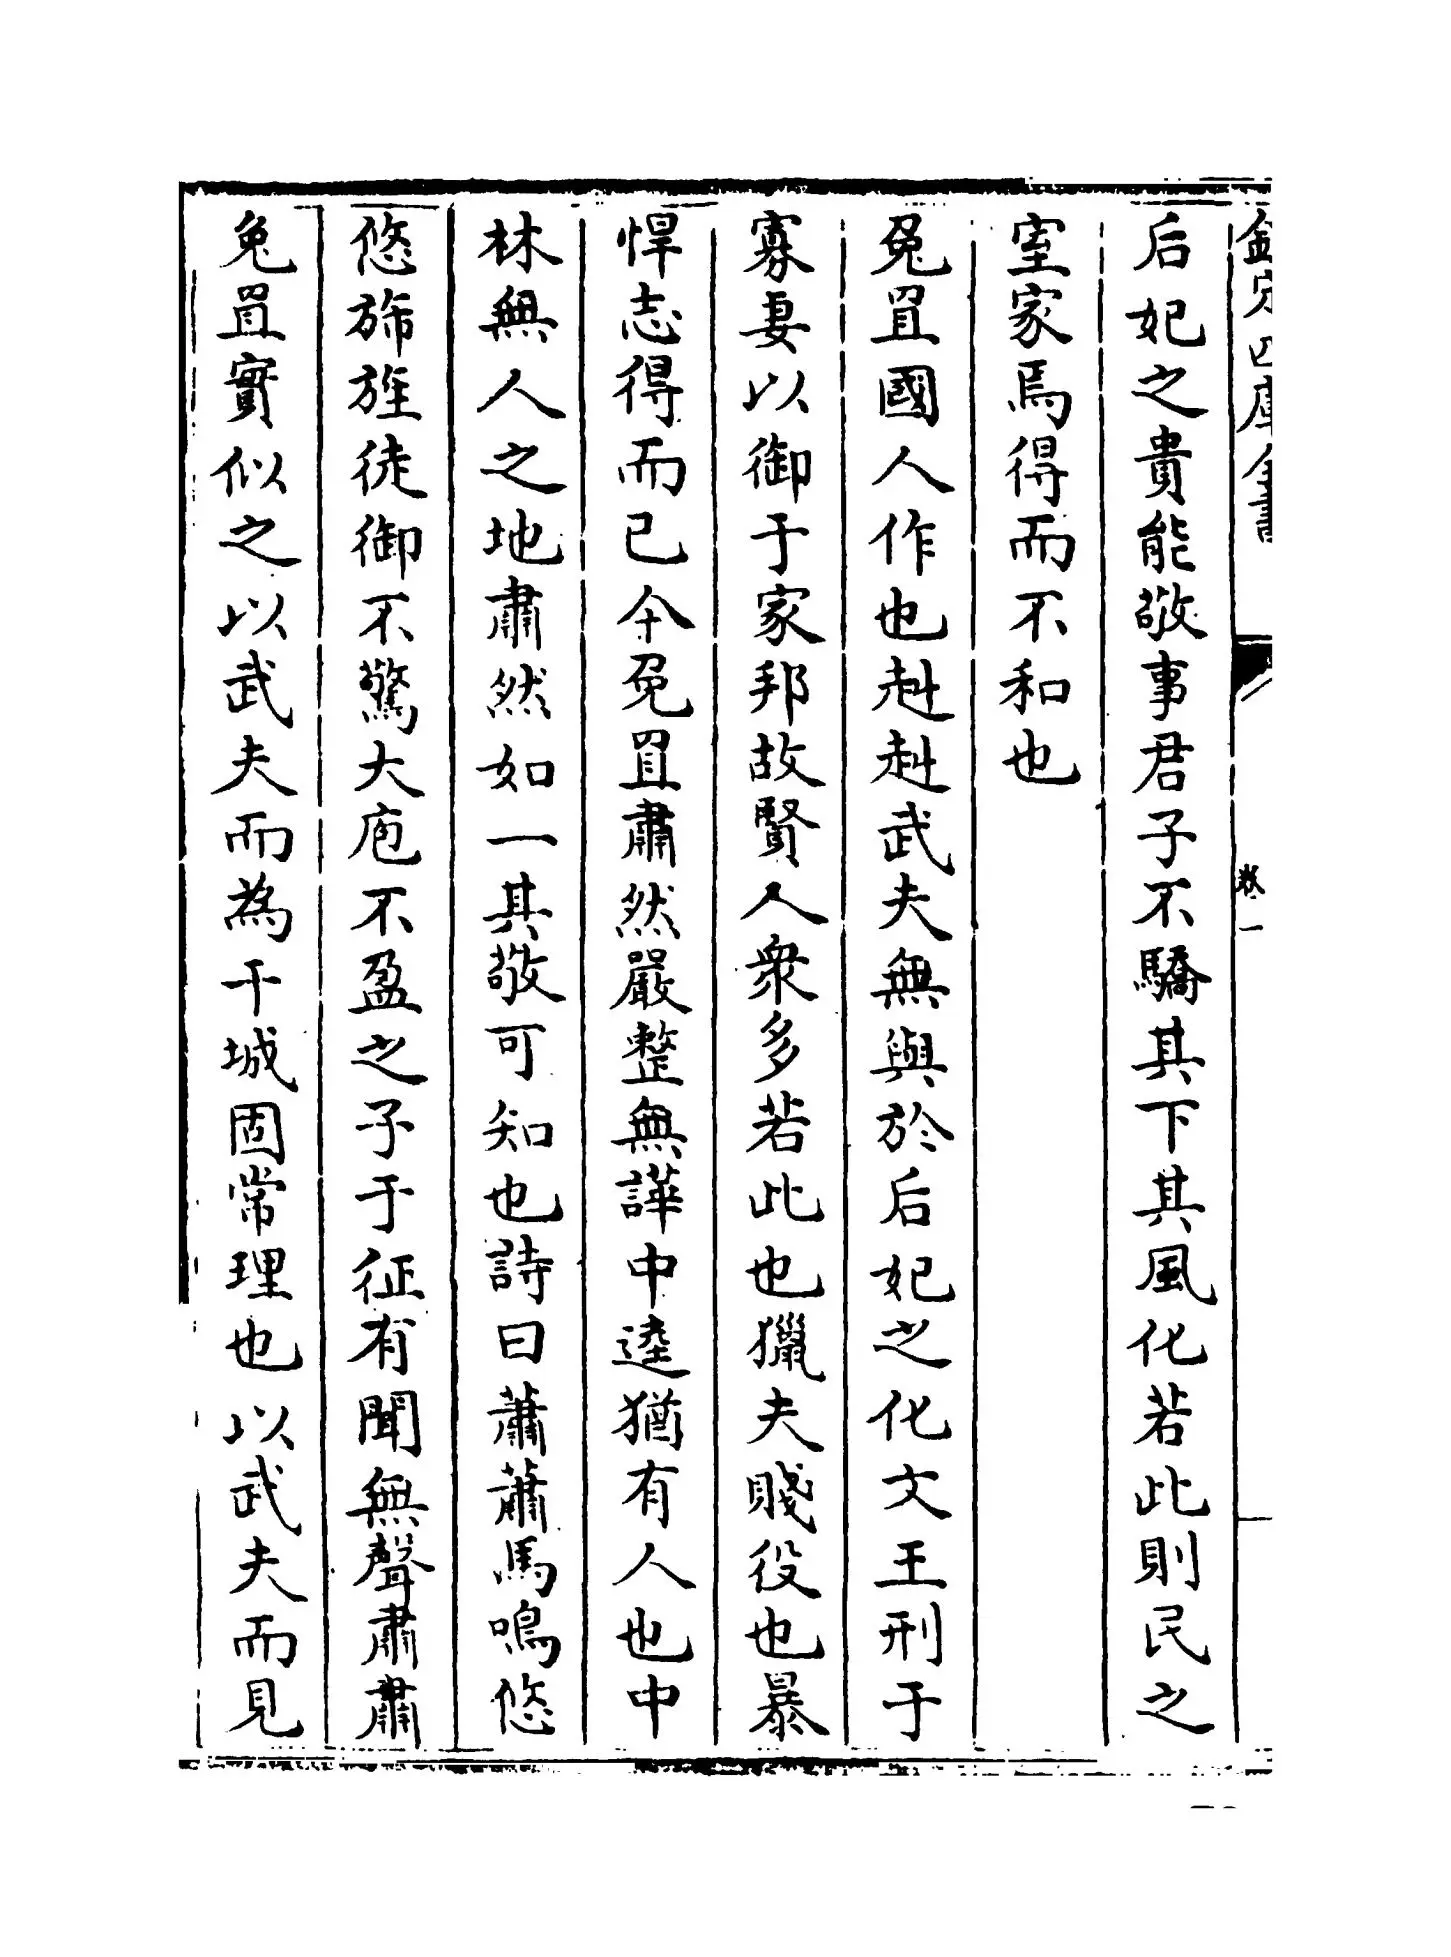 欽定四庫全書
卷一
后妃之貴能敬事君子不驕其下其風化若此則民之
室家焉得而不和也
兔罝國人作也赳赳武夫無與於后妃之化文王刑于
寡妻以御于家邦故賢人衆多若此也獵夫賤役也暴
悍志得而已今兔罝肅然嚴整無譁中逵猶有人也中
林無人之地肅然如一其敬可知也詩曰蕭蕭馬鳴悠
悠斾旌徒御不驚大庖不盈之子于征有聞無聲肅肅
兔罝實似之以武夫而為干城固常理也以武夫而見